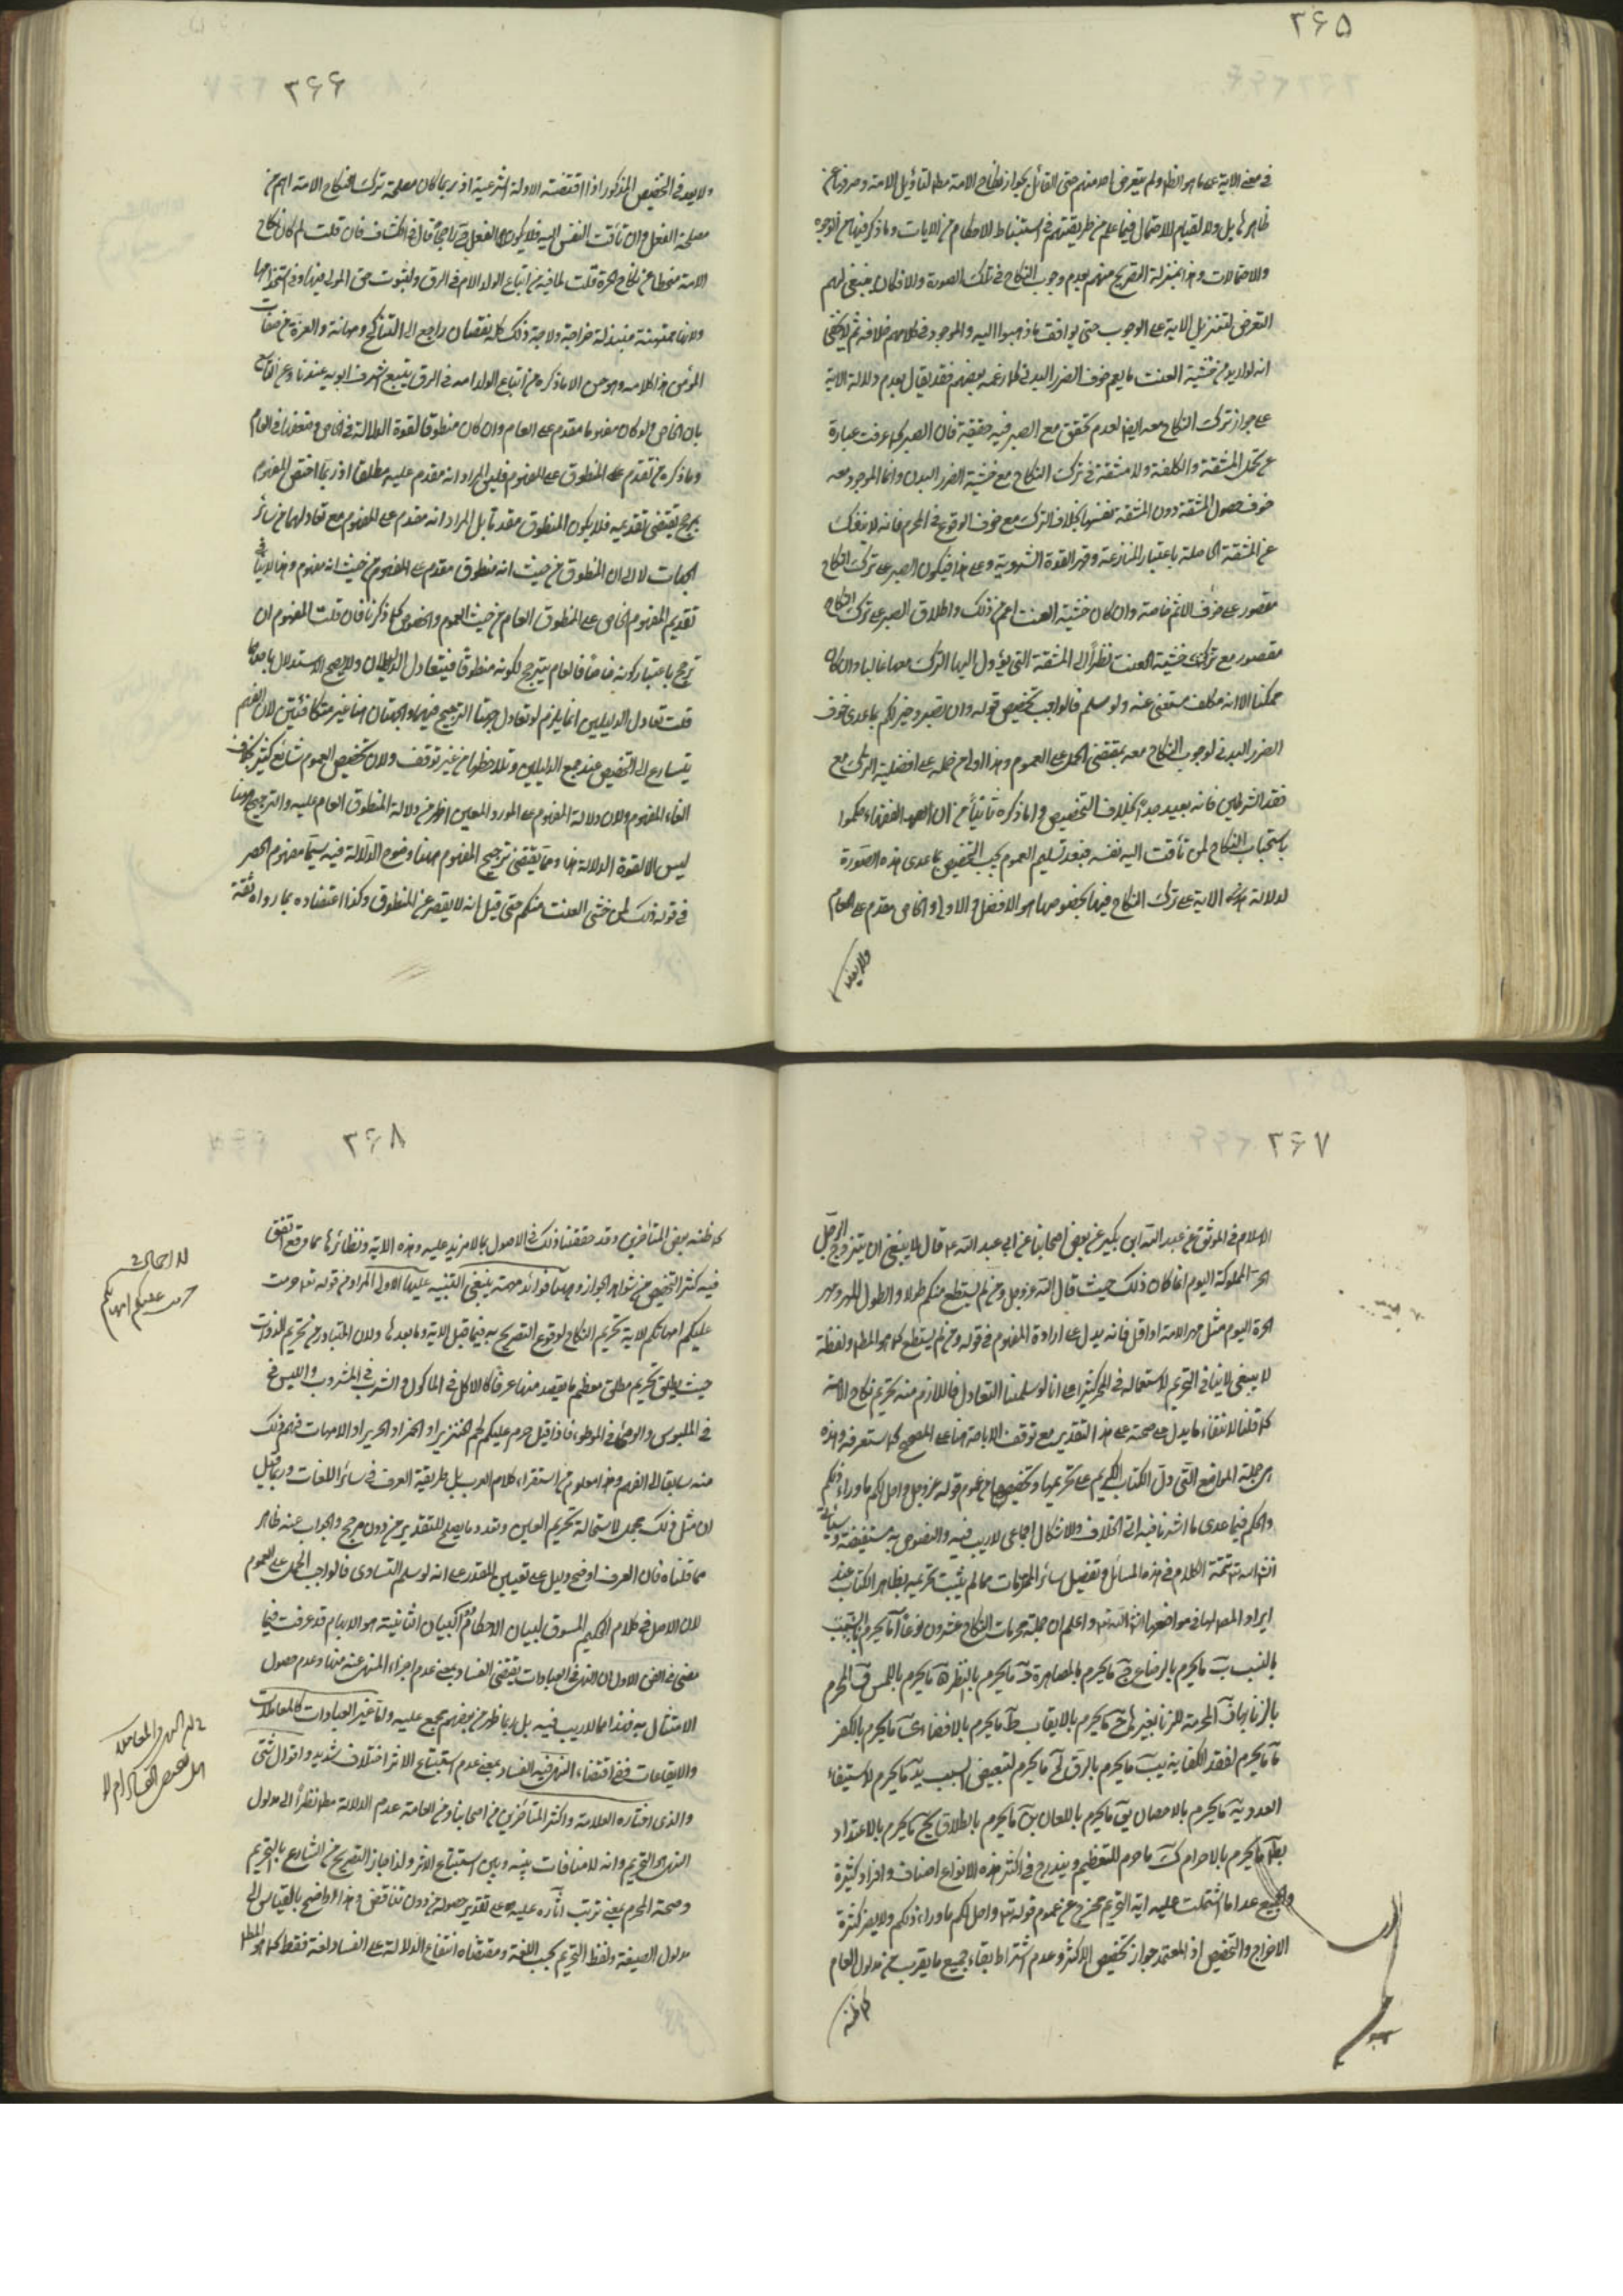 ٣۶۵
في معنى الاية على ما هو الظ ولم يتعرض احد منهم حتى القائل بجواز نكاح الامة مط لتأويل الامة وصرفها عن
ظاهرها بل ولا لقيام الاحتمال فيما علم من طريقتهم في استنباط الاحكام من الايات وما ذكر فيها من الوجوه
والاحتمالات وهذا بمنزلة التصريح منهم بعدم وجوب النكاح في تلك الصورة والا فكان ينبغي لهم
التعرض لتنزيل الاية على الوجوب حتى يوافق ما ذهبوا اليه والموجود في كلامهم خلافه ثم لا يخفى
انه لو اريد من خشية العنت ما يعم خوف الضرر البدني كما زعمه بعضهم فقد يقال بعدم دلالة الاية
على جواز ترك النكاح معه ايضا لعدم تحقق مع الصبر فيه حقيقة فان الصبر كما عرفت عبارة
عن تحمل المشقة والكلفة ولا مشقة في ترك النكاح مع خشية الضرر البدني وانما الموجود معه
خوف حصول المشقة دون المشقة نفسها بخلاف الترك مع خوف الوقوع في المحرم فانه لا ينفك
عن المشقة الحاصلة باعتبار المنازعة وقهر القوة الشهوية وعلى هذا فيكون الصبر على ترك النكاح
مقصور على خوف الاثم خاصة وان كان خشية العنت اعم من ذلك واطلاق الصبر على ترك النكاح
مقصور مع ترك خشية العنت نظراً الى المشقة التي يؤول اليها الترك معها غالبا وان كان
ممكنا الا انه مكلف مستغنى عنه ولو سلم فالواجب تخصيص قوله وان تصبروا خير لكم بما عدى خوف
الضرر البدني لوجوب النكاح معه بمقتضى الحمل على العموم وهذا اولى من حمله على افضلية الترك مع
فقد الشرطين فانه بعيد جداً بخلاف التخصيص واما ذكره ثانياً من ان الفقهاء حكموا
باستحباب النكاح لمن تاقت اليه نفسه فبعد تسليم العموم يجب التخصيص بما عدى هذه الصورة
لدلالة الاية على ترك النكاح فيها بخصوصها هو الافضل والاولى والخاص مقدم على العام
ولا بعد
٣۶۶
ولا بعد في التخصيص المذكور اذا اقتضته الادلة الشرعية اذ ربما كان مصلحة ترك النكاح الامة اهم من
مصلحة الفعل وان تاقت النفس اليه فلا يكون الفعل ح راجحاً قال في الكشاف فان قلت لم كان نكاح
الامة منحطا عن نكاح الحرة قلت لما فيه من اتباع الولد الام في الرق ولثبوت حق المولى فيها وفي استخدامها
ولانها ممتهنة مبتذلة خراجة ولاجة وذلك كله نقصان راجع الى الناكح ومهانة والعزة من صفات
المؤمن هذا كلامه وهو حسن الا ما ذكره من اتباع الولد امه في الرق يتبع اشرف ابويه عندنا وعن الثاني
بان الخاص ولو كان مفهوما مقدم على العام وان كان منطوقا لقوة الدلالة في الخاص وضعفها في العام
وما ذكره من تقدم المنطوق على المفهوم فليس المراد انه مقدم عليه مطلقا اذ ربما اختص المفهوم
بمرجح يقتضي تقديمه فلا يكون المنطوق مقدماً بل المراد انه مقدم على المفهوم مع تعادلهما من سائر
الجهات لا الى ان المنطوق من حيث انه منطوق مقدم على المفهوم من حيث انه مفهوم وهذا لا ينافي
تقديم المفهوم الخاص على المنطوق العام من حيث العموم والخصوص كما ذكرنا فان قلت المفهوم ان
ترجح باعتبار كونه خاصاً فالعام يترجح لكونه منطوقاً فيتعادل الدليلان ولا يصح الاستدلال باحدهما
قلت تعادل الدليلين انما يلزم لو تعادل جهتا الترجيح فيهما والجهتان هنا غير متكافئتين لان الفهم
يتسارع الى التخصيص عند جمع الدليلين وملاحظتهما من غير توقف ولان تخصيص العموم شائع كثير بخلاف
الغاء المفهوم ولان دلالة المفهوم على المورد المعين اظهر من دلالة المنطوق العام عليه والترجيح هنا
ليس الا لقوة الدلالة هذا ومما يقتضي ترجيح المفهوم ههنا وضوح الدلالة فيه سيما مفهوم الحصر
في قوله ذلك لمن خشي العنت منكم حتى قيل انه لا يقصر عن المنطوق وكذا اعتضاده بما رواه ثقة
٢۶٧
الاسلام في الموثق عن عبد الله ابن بكير عن بعض اصحابنا عن ابي عبد الله ع قال لا ينبغي ان يتزوج الرجل
الحر المملوكة اليوم انما كان ذلك حيث قال الله عز وجل ومن لم يستطع منكم طولا والطول المهر ومهر
الحرة اليوم مثل مهر الامة او اقل فانه يدل على ارادة المفهوم في قوله ومن لم يستطع كما هو المط ولفظة
لا ينبغي لا ينافي التحريم لاستعماله في المحرم كثيرا على انا لو سلمنا التعادل فاللازم منه تحريم نكاح الامة
كما قلنا لانتفاء ما يدل على صحته على هذا التقدير مع توقف الاباحة هنا على المصحح كما ستعرفه وهذه
من جملة المواضع التي دل الكتاب الكريم على تحريمها وتخصيصها من عموم قوله عز وجل واحل لكم ما وراء ذلكم
والحكم فيما عدى ما اشرنا فيه الى الخلاف والاشكال اجماعي لا ريب فيه والنصوص به مستفيضة وسيأتي
انشاء الله تتمة الكلام في هذه المسائل وتفصيل سائر المحرمات مما لم يثبت تحريمه بظاهر الكتاب عند
ايراد المصنف لها في مواضعها انشاء الله تعالى واعلم ان جملة محرمات النكاح عشرون نوعاً آ ما يحرم
بالنسب ب ما يحرم بالرضاع ج ما يحرم بالمصاهرة د ما يحرم بالنظر ه ما يحرم باللمس و المحرم
بالزنا بها ز المحرمة للزنا بغيرها ح ما يحرم بالايقاب ط ما يحرم بالافضاء ي ما يحرم بالكفر
يا ما يحرم لفقد الكفاية يب ما يحرم بالرق يج ما يحرم لتبعيض السبب يد ما يحرم لاستيفاء
العدد يه ما يحرم بالاحصان يو ما يحرم باللعان يز ما يحرم بالطلاق يح ما يحرم بالاعتداد
يط ما يحرم بالاحرام ك ما حرم للتعظيم ويندرج في اكثر هذه الانواع اصناف وافراد كثيرة
والجميع عدا ما اشتملت عليه اية التحريم مخرج عن عموم قوله تعالى واحل لكم ما وراء ذلكم ولا يضر كثرة
الاخراج والتخصيص اذ المعتمد جواز تخصيص الاكثر وعدم اشتراط بقاء جميع ما يقرب من مدلول العام
كما ظنه
٣۶٨
كما ظنه بعض المتاخرين وقد حققنا ذلك في الاصول بما لا مزيد عليه وهذه الاية ونظائرها مما وقع اتفق
فيه كثر التخصيص من شواهد الجواز وههنا فوائد مهمة ينبغي التنبيه عليها الاولى المراد من قوله تعالى حرمت
عليكم امهاتكم الاية تحريم النكاح لوقوع التصريح به فيما قبل الاية وما بعدها ولان المتبادر من تحريم الذوات
حيث يطلق تحريم مطلق معظم ما يقصد منها عرفا كالاكل في الماكول والشرب في المشروب واللبس
في الملبوس والوطئ في الموطوء فاذا قيل حرم عليكم لحم الخنزير او الخمر او الحرير او الامهات فهم ذلك
منه سابقا الى الفهم وهذا معلوم من استقراء كلام العرب بل طريقة العرف في سائر اللغات وربما قيل
ان مثل ذلك مجمل لاستحالة تحريم العين وتعدد ما يصلح للتقدير من دون مرجح والجواب عنه ظاهر
مما قلناه فان العرف اوضح دليل على تعيين المقدر على انه لو سلم التساوي فالواجب الحمل على العموم
لان الاصل في كلام الحكيم المسوق لبيان الاحكام هو البيان الثانية هو الابهام قد عرفت فيما
مضى في الفن الاول ان النهي في العبادات يقتضي الفساد بمعنى عدم اجزاء المنهي عنه منها وعدم حصول
الامتثال به فهذا مما لا ريب فيه بل ربما ظهر من بعضهم مجمع عليه واما غير العبادات كالمعاملات
والايقاعات ففي اقتضاء النهي فيه الفساد بمعنى عدم استتباع الاثر اختلاف شديد واقوال شتى
والذي اختاره العلامة واكثر المتاخرين من اصحابنا ومن العامة عدم الدلالة مط نظراً الى مدلول
النهي هو التحريم وانه لا منافات بينه وبين استتباع الاثر ولذا جاز التصريح من الشارع بالتحريم
وصحة المحرم بمعنى ترتب اثاره عليه على تقدير حصوله من دون تناقض وهذا واضح بالقياس الى
مدلول الصيغة ولفظ التحريم بحسب اللغة ومقتضاه انتفاع الدلالة على الفساد لغة فقط كما هو المط
حرمت عليكم امهاتكم